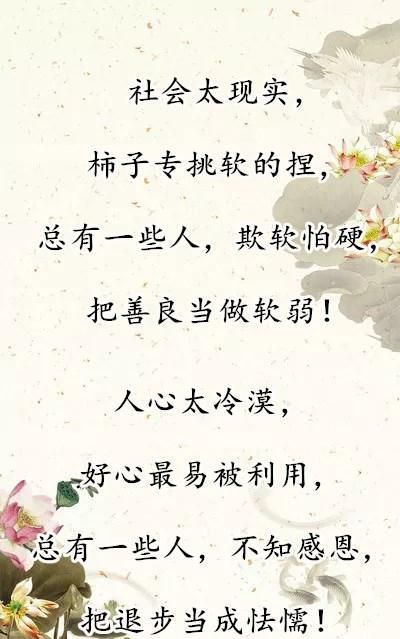 社会太现实，
柿子专挑软的捏，
总有一些人，欺软怕硬，
把善良当做软弱！
人心太冷漠，
好心最易被利用，
总有一些人，不知感恩，
把退步当成怯懦！